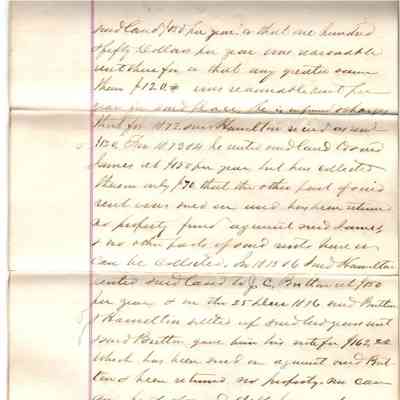 said land $150 per year & that one hundred
& fifty Dollars per year was reasonable
rent therefor & that any greater sum
than $120 was reasonable rent per
year in said place he is informed & charges
that for 1872 said Hamilton
$120. For 1873 & 4 he rented said land to said
James at $150 per year but has collected
therein only $70 that the other part of said
rent was sued on and has been returned
no property found against said James
& no other part of said rents
can be collected. In 1875 & 6 said Hamilton
rented said land to J. C. Britton at $150
per year & on the 25 Decr 1876 said Britton
& Hamilton settled up said two years rent
said Britton gave him his note for $162.00
which has been sued on against said Brit-
ton & been returned no property